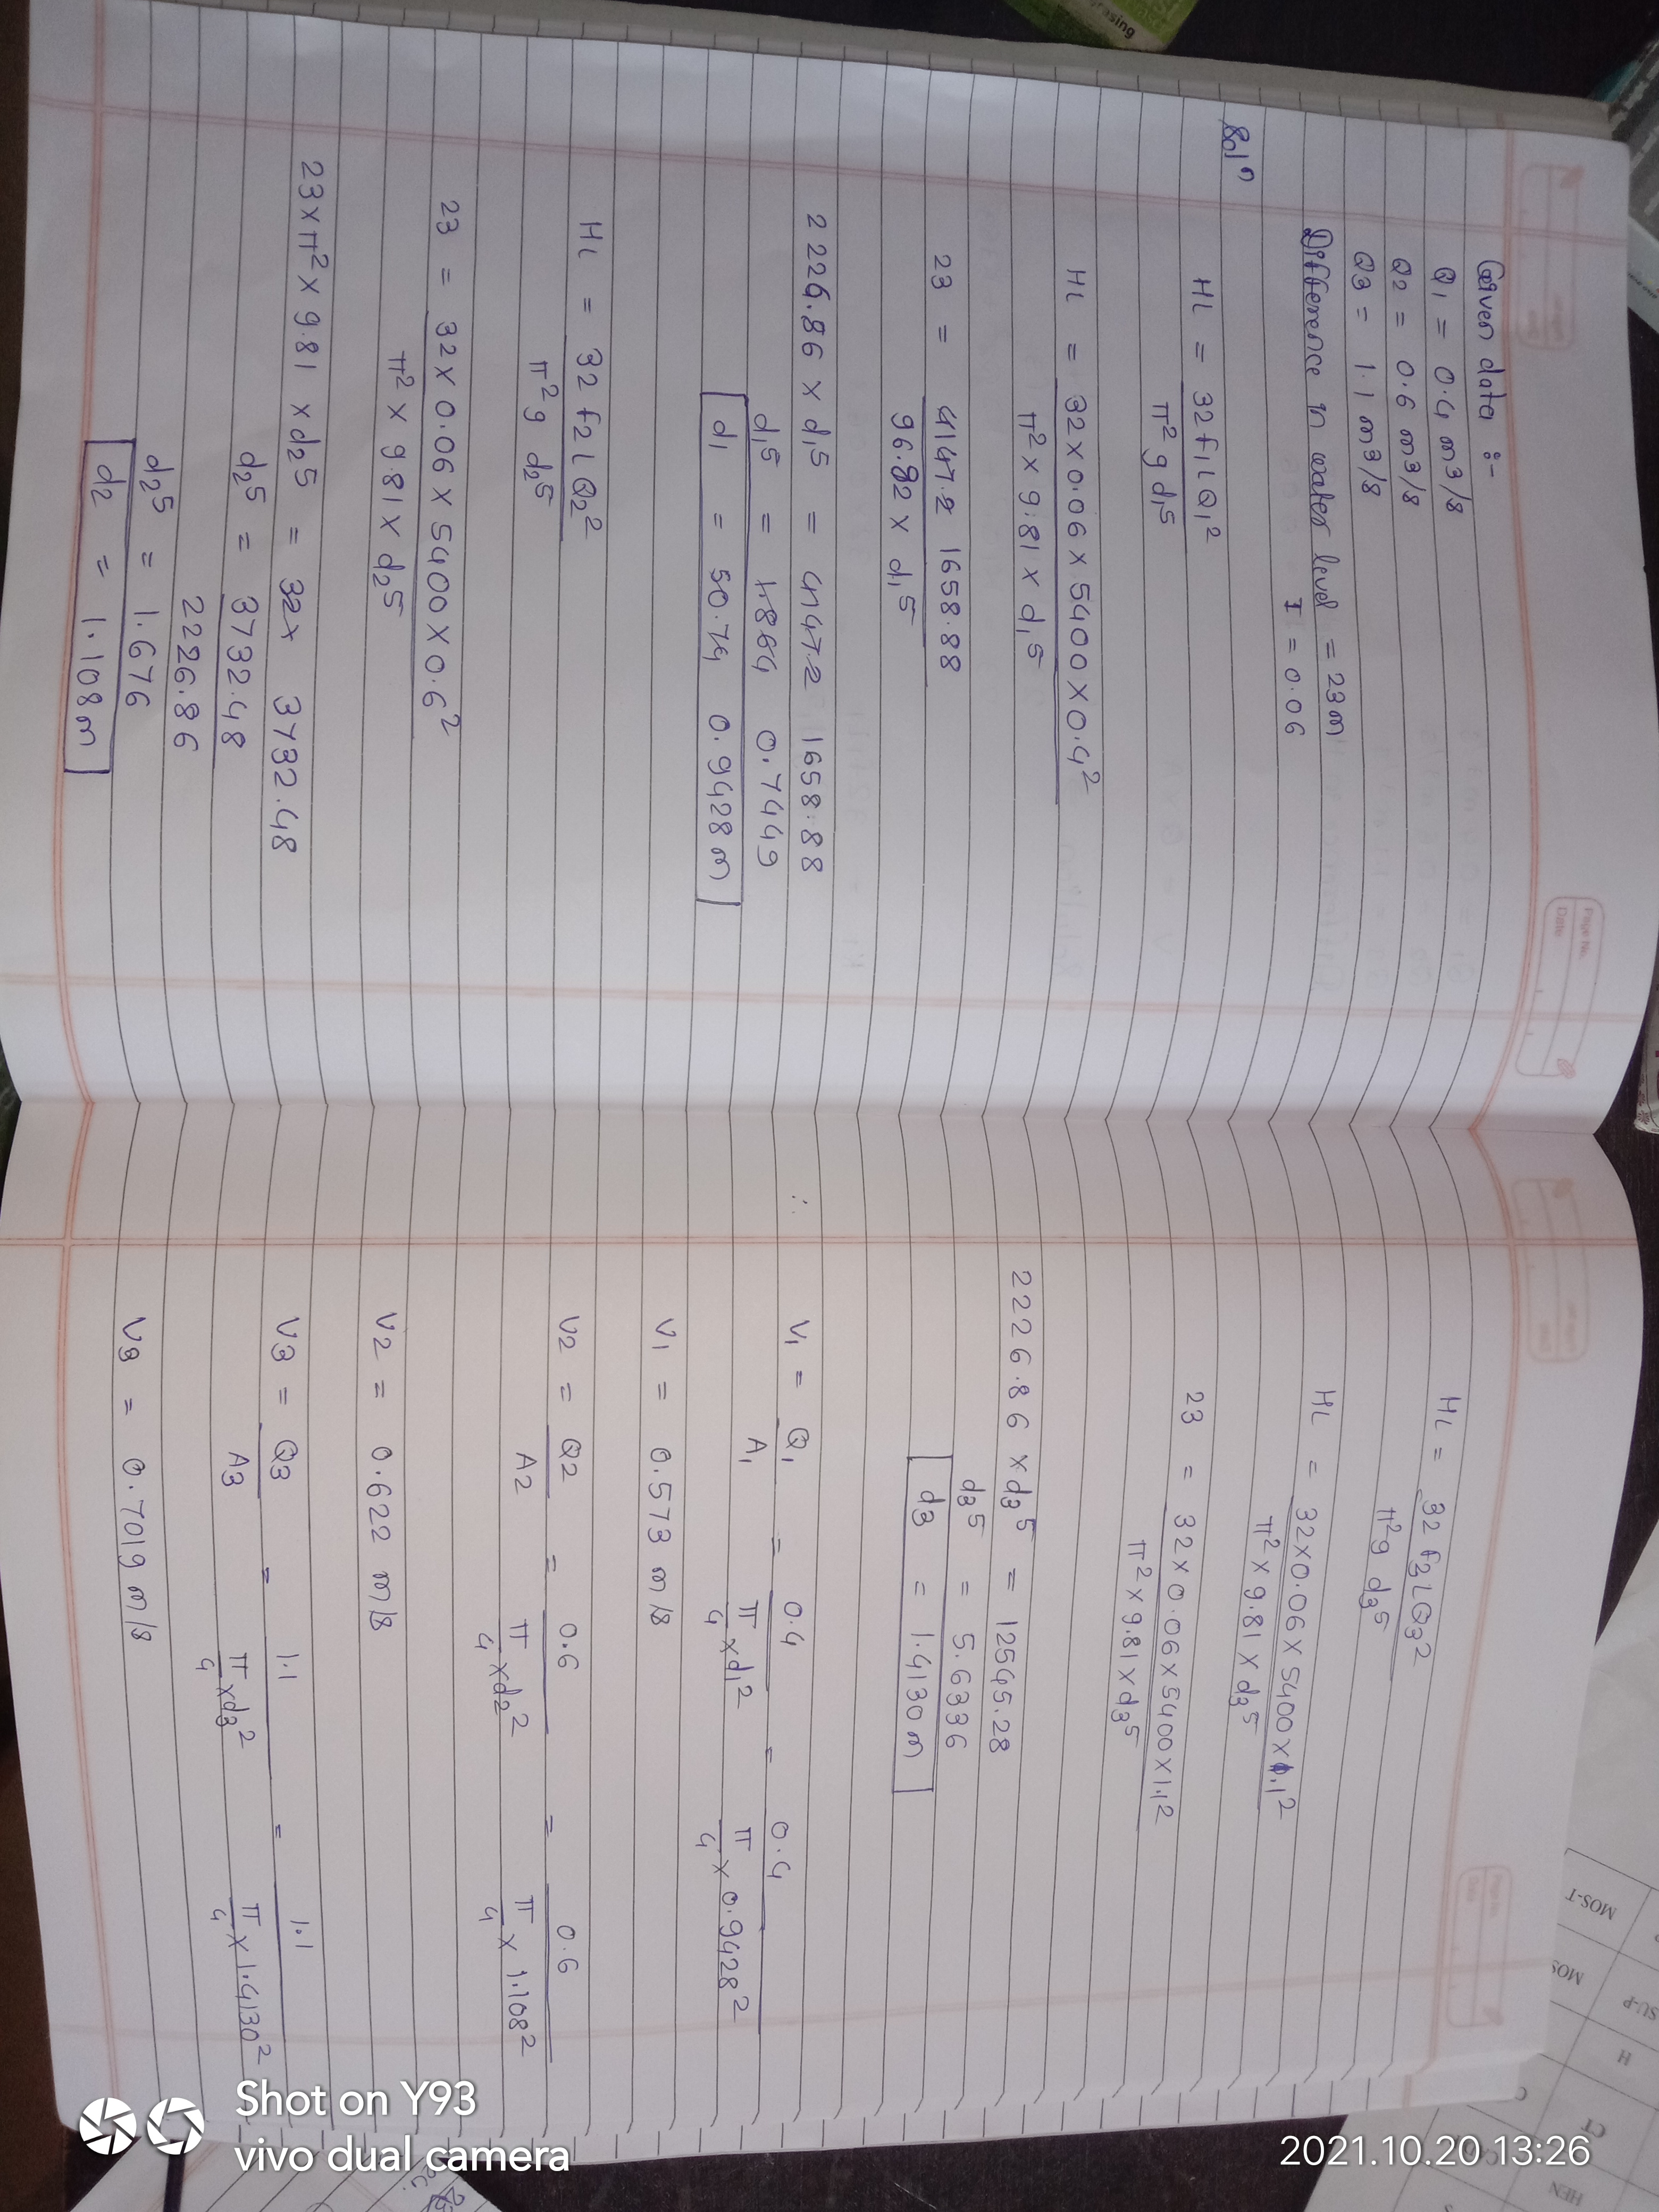 Given data :-
Q1 = 0.4 m3/s
Q2 = 0.6 m3/s
Q3 = 1.1 m3/s
Difference in water level = 23m
f = 0.06
Solⁿ
HL = 32 f1 L Q1²
π² g d1⁵
HL = 32 × 0.06 × 5400 × 0.4²
π² × 9.81 × d1⁵
23 = 4147.2 1658.88
96.82 × d1⁵
2226.86 × d1⁵ = 4147.2 1658.88
d1⁵ = 1.864 0.7449
d1 = 50.74 0.9428 m
HL = 32 f2 L Q2²
π² g d2⁵
23 = 32 × 0.06 × 5400 × 0.6²
π² × 9.81 × d2⁵
23 × π² × 9.81 × d2⁵ = 32× 3732.48
d2⁵ = 3732.48
2226.86
d2⁵ = 1.676
d2 = 1.108 m
HL = 32 f3 L Q3²
π² g d3⁵
HL = 32 × 0.06 × 5400 × 1.1²
π² × 9.81 × d3⁵
23 = 32 × 0.06 × 5400 × 1.1²
π² × 9.81 × d3⁵
2226.86 × d3⁵ = 12545.28
d3⁵ = 5.6336
d3 = 1.4130 m
∴ V1 = Q1 = 0.4 = 0.4
A1 π/4 × d1² π/4 × 0.9428²
V1 = 0.573 m/s
V2 = Q2 = 0.6 = 0.6
A2 π/4 × d2² π/4 × 1.108²
V2 = 0.622 m/s
V3 = Q3 = 1.1 = 1.1
A3 π/4 × d3² π/4 × 1.4130²
V3 = 0.7019 m/s
Page No.
Date
MOS-T
MOS
SU-P
H
CT
HEN
Shot on Y93
vivo dual camera
2021.10.20 13:26